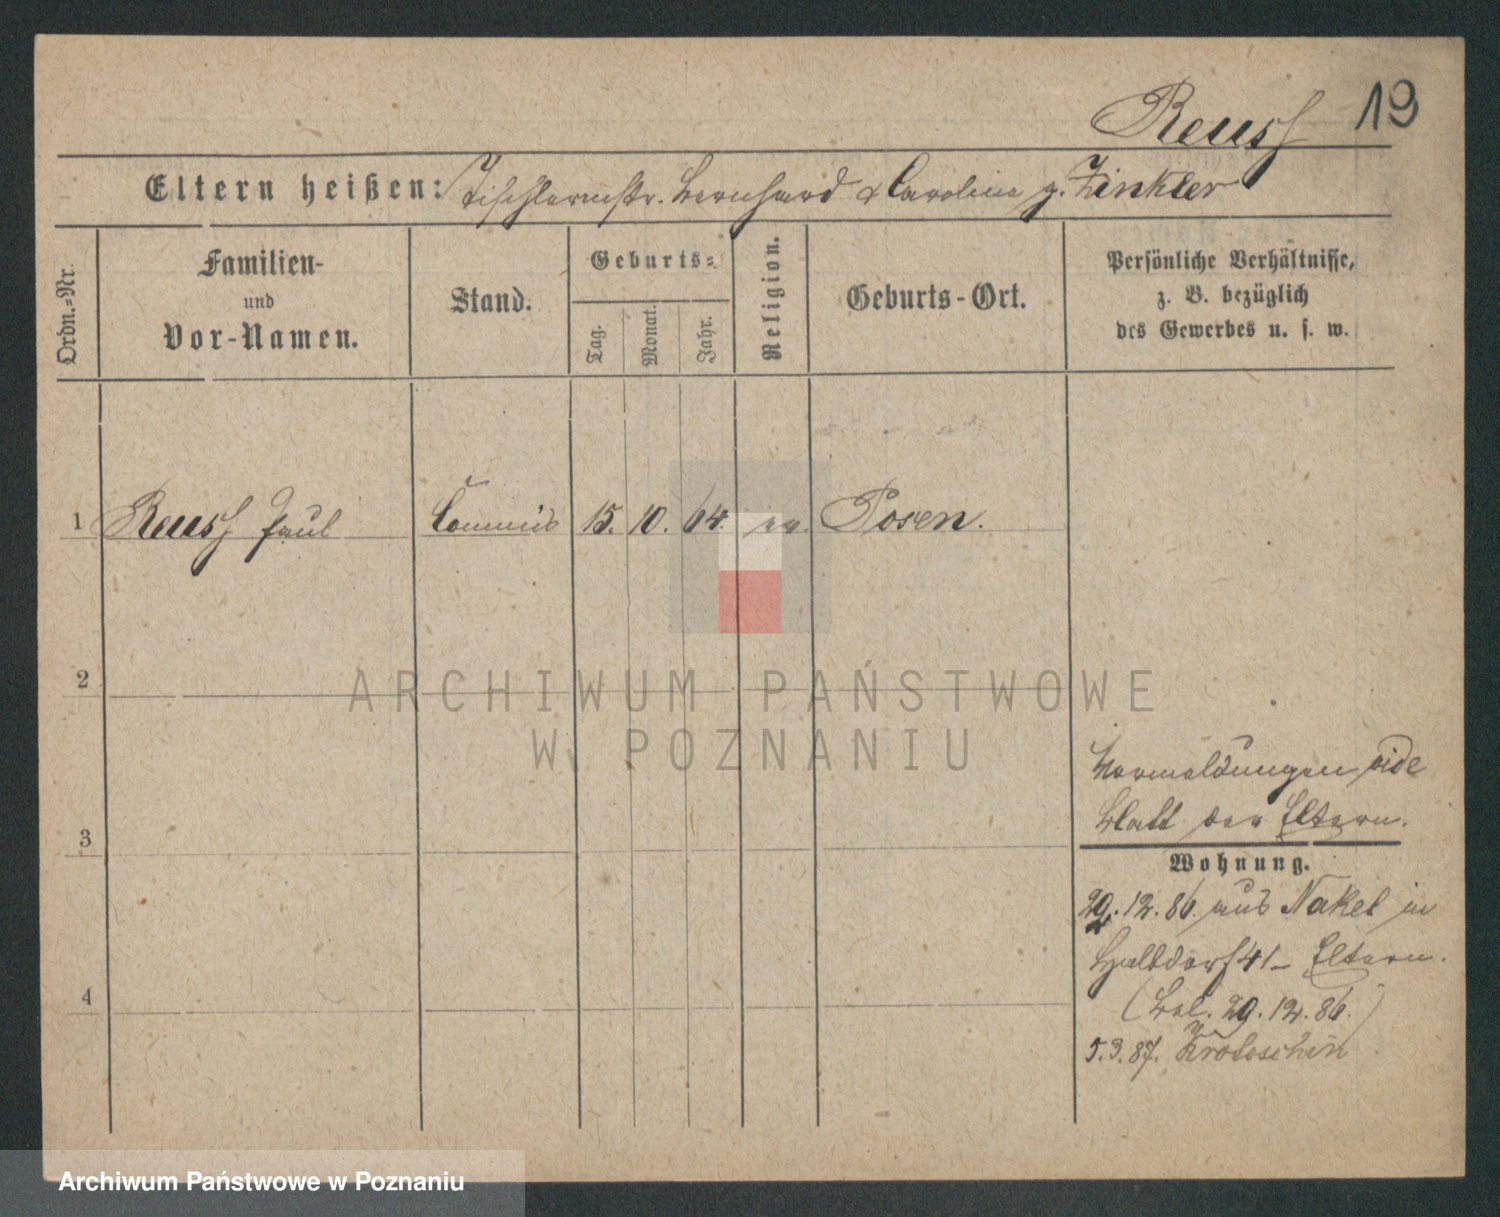 Reusch 19
Eltern heißen: Tischlermstr. Bernhard & Caroline g. Zinkler
Ordn.-Nr.
Familien-
und
Vor-Namen.
Stand.
Geburts-
Tag.
Monat.
Jahr.
Religion.
Geburts-Ort.
Persönliche Verhältnisse,
z. B. bezüglich
des Gewerbes u. s. w.
1 Reusch Paul Commis 15. 10. 64. ev. Posen.
2
3
4
Vermeldungen vide
Blatt der Eltern.
Wohnung.
29. 12. 86. aus Nakel in
Halbdorf 41 - Eltern.
(Bel. 29. 12. 86.)
5. 3. 87. Krotoschin
ARCHIWUM PAŃSTWOWE
W POZNANIU
Archiwum Państwowe w Poznaniu